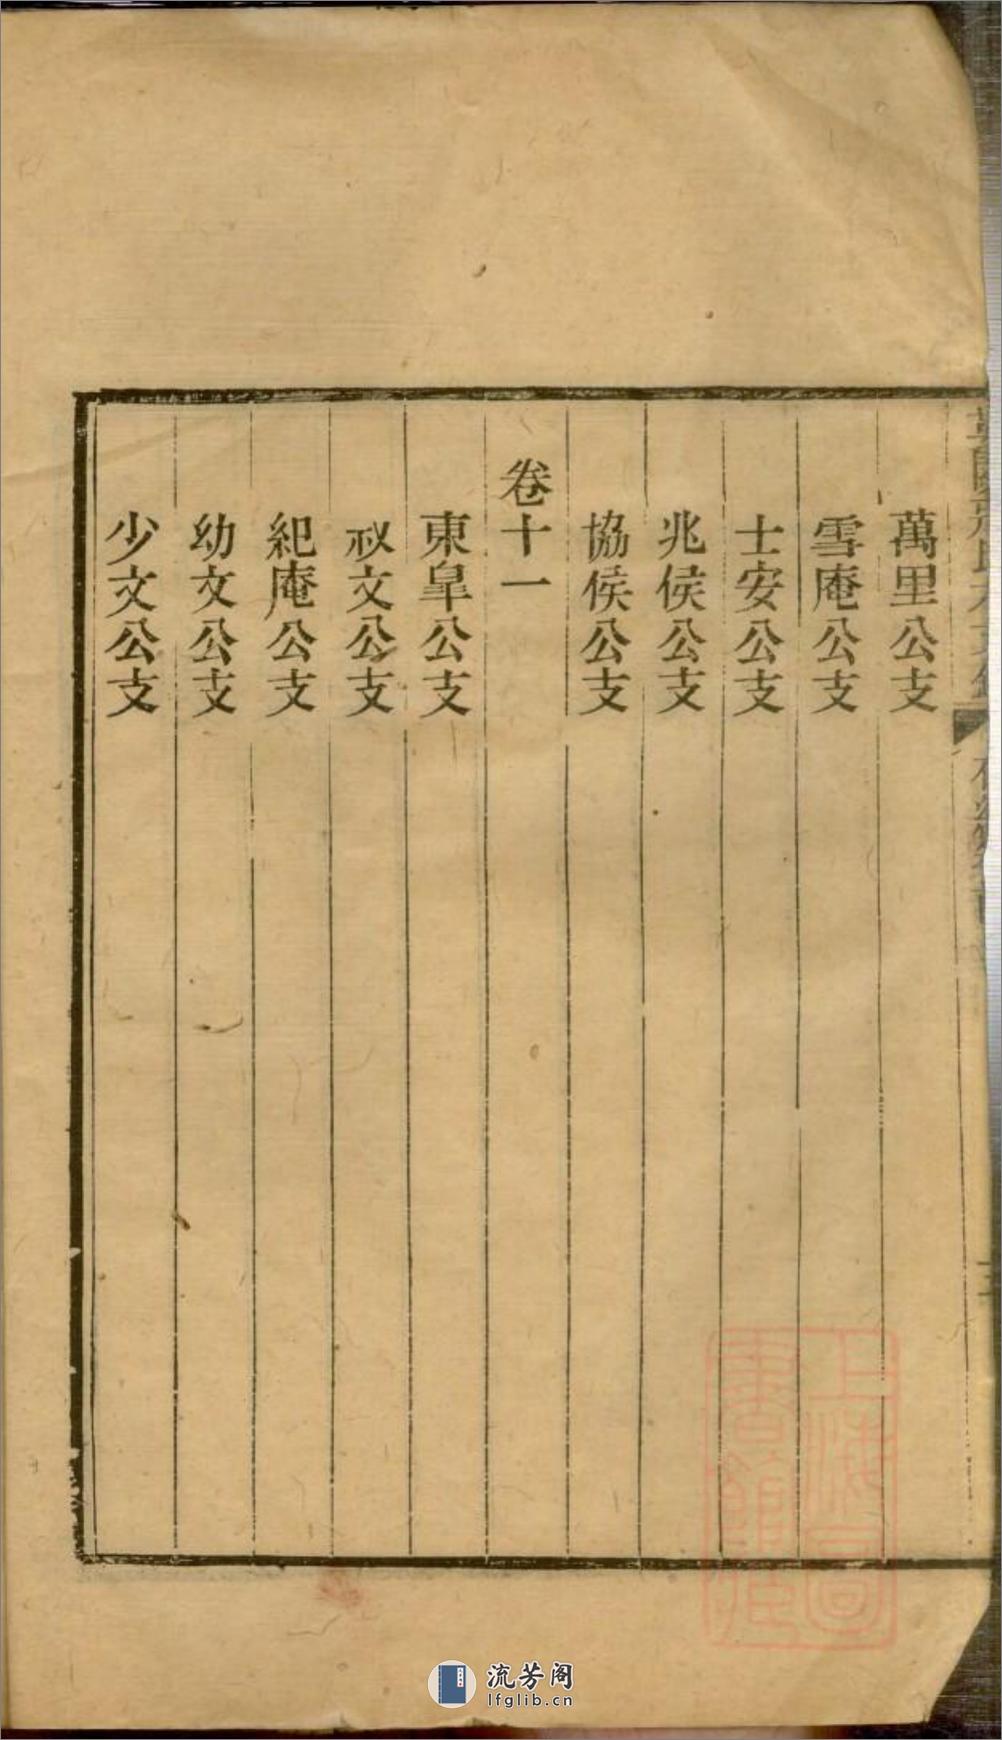 萬里公支
雪庵公支
士安公支
兆侯公支
協侯公支
卷十一
東皐公支
祕文公支
紀庵公支
幼文公支
少文公支
上海圖書館藏
流芳阁
lfglib.cn